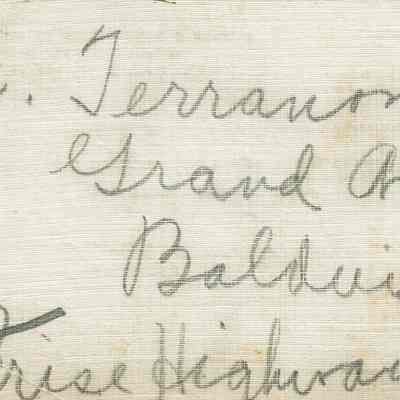 . Terranov
Grand A
Baldwi
rise Highway